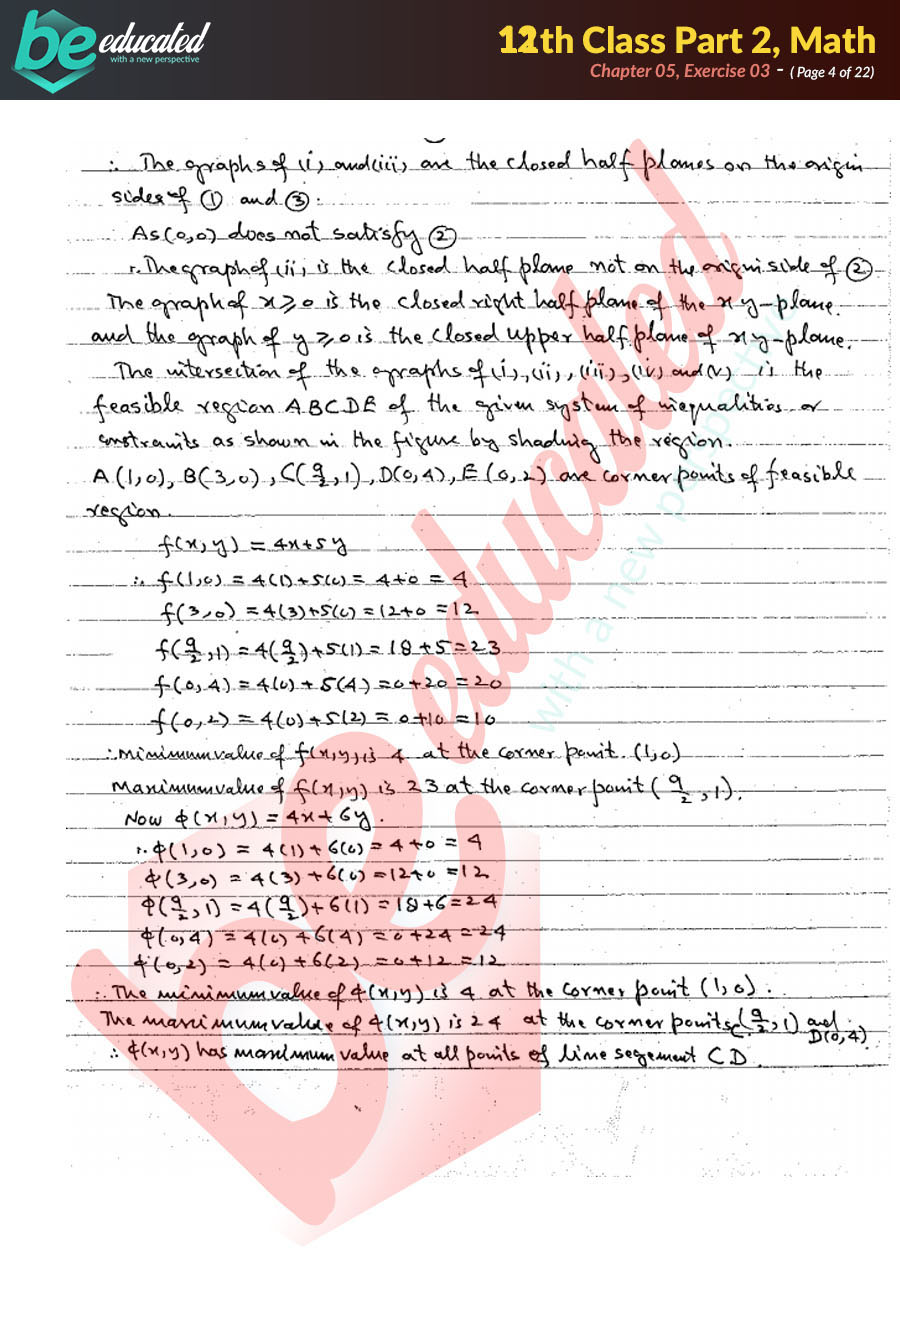 be educated
with a new perspective
12th Class Part 2, Math
Chapter 05, Exercise 03 - ( Page 4 of 22)
∴ The graphs of (i) and (iii) are the closed half planes on the origin
sides of ① and ③.
As (0,0) does not satisfy ②
∴ The graph of (ii) is the closed half plane not on the origin side of ②
The graph of x ≥ 0 is the closed right half plane of the xy-plane.
and the graph of y ≥ 0 is the closed upper half plane of xy-plane.
The intersection of the graphs of (i), (ii), (iii), (iv) and (v) is the
feasible region ABCDE of the given system of inequalities or
constraints as shown in the figure by shading the region.
A(1,0), B(3,0), C(9/2,1), D(0,4), E(0,2) are corner points of feasible
region.
f(x,y) = 4x+5y
∴ f(1,0) = 4(1)+5(0) = 4+0 = 4
f(3,0) = 4(3)+5(0) = 12+0 = 12
f(9/2,1) = 4(9/2)+5(1) = 18+5 = 23
f(0,4) = 4(0)+5(4) = 0+20 = 20
f(0,2) = 4(0)+5(2) = 0+10 = 10
∴ Minimum value of f(x,y) is 4 at the corner point (1,0)
Maximum value of f(x,y) is 23 at the corner point (9/2,1).
Now φ(x,y) = 4x+6y.
∴ φ(1,0) = 4(1)+6(0) = 4+0 = 4
φ(3,0) = 4(3)+6(0) = 12+0 = 12
φ(9/2,1) = 4(9/2)+6(1) = 18+6 = 24
φ(0,4) = 4(0)+6(4) = 0+24 = 24
φ(0,2) = 4(0)+6(2) = 0+12 = 12
∴ The minimum value of φ(x,y) is 4 at the corner point (1,0).
The maximum value of φ(x,y) is 24 at the corner points C(9/2,1) and D(0,4)
∴ φ(x,y) has maximum value at all points of line segement CD.
be educated
with a new perspective